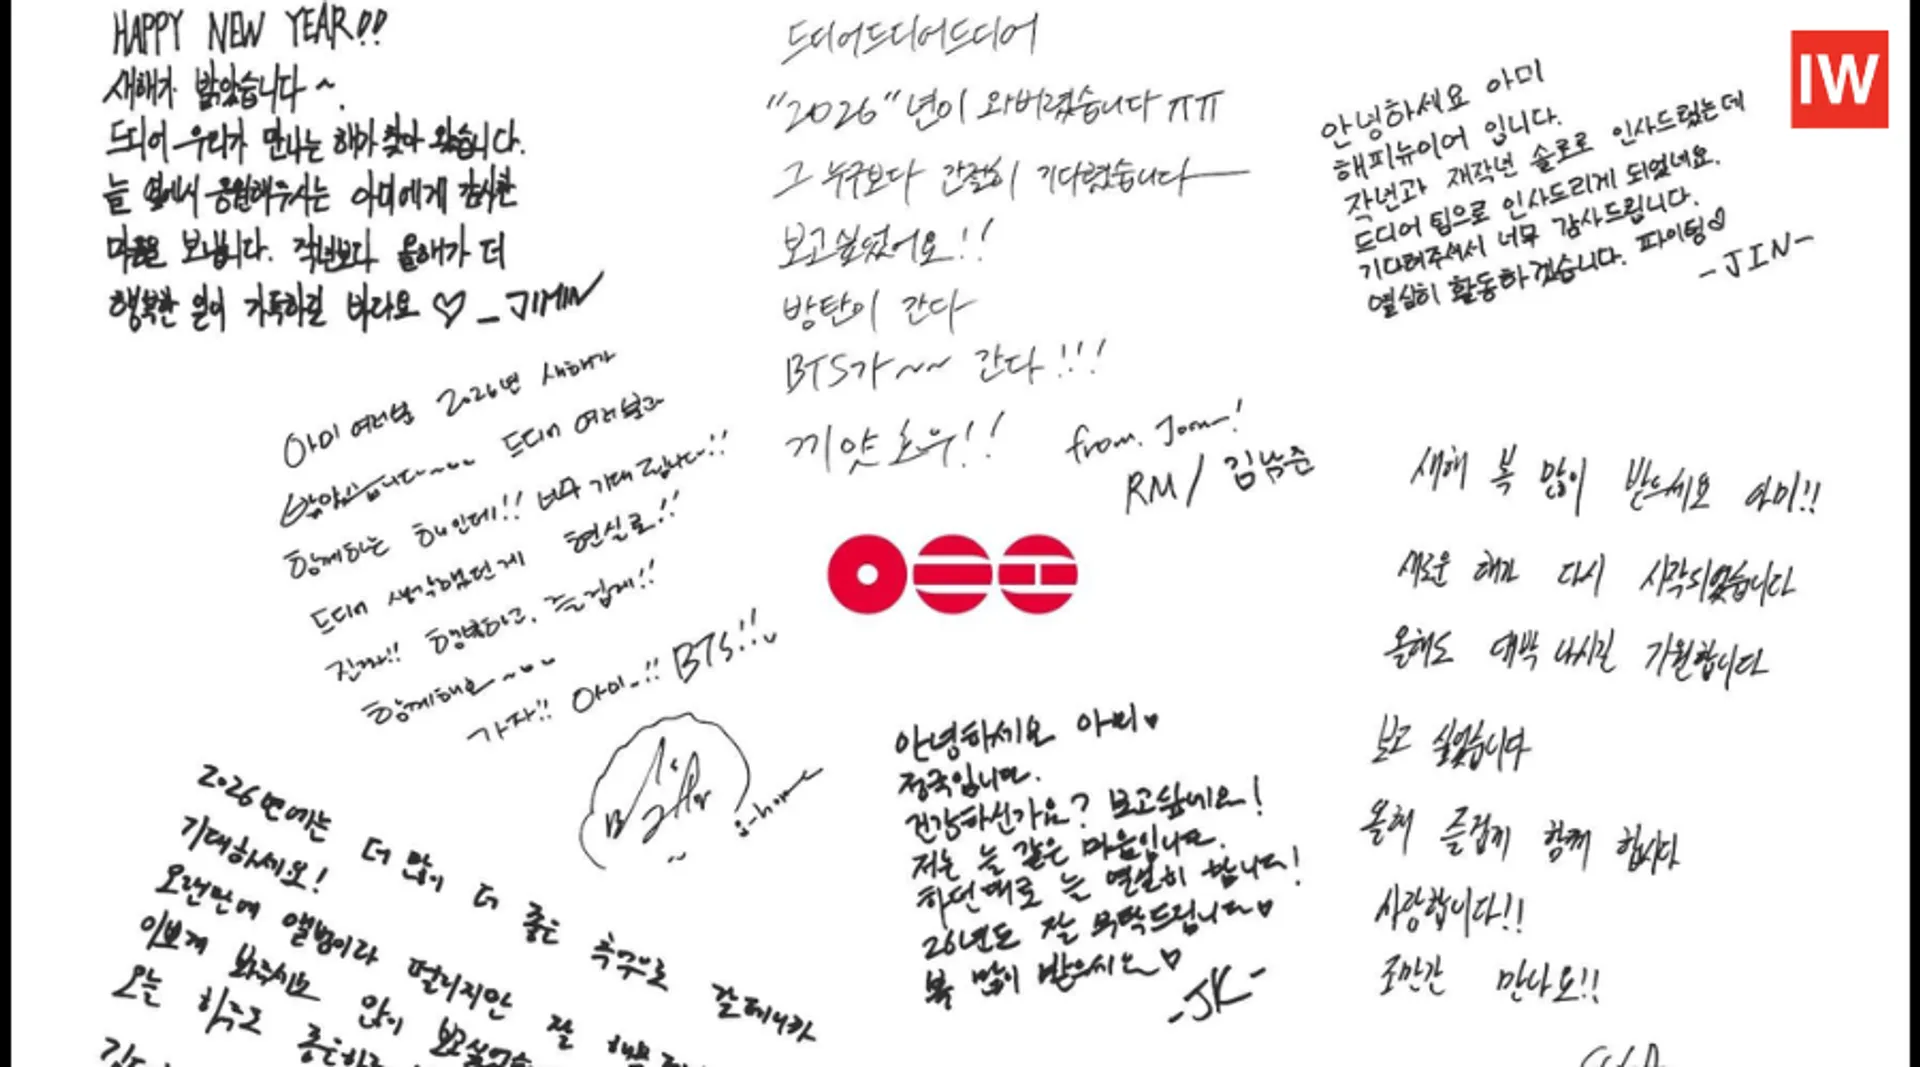 HAPPY NEW YEAR!!
새해가 밝았습니다~.
드디어 우리가 만나는 해가 찾아 왔습니다.
늘 옆에서 응원해주시는 아미에게 감사한
마음을 보냅니다. 작년보다 올해가 더
행복한 일이 가득하길 바라요 ♡ _ JIMIN
드디어드디어드디어
"2026"년이 와버렸습니다 ㅠㅠ
그 누구보다 간절히 기다렸습니다—
보고싶었어요!!
방탄이 간다
BTS가~~ 간다!!!
끼얏호우!!
from. Joon!
RM / 김남준
IW
안녕하세요 아미
해피뉴이어 입니다.
작년과 재작년 솔로로 인사드렸는데
드디어 팀으로 인사드리게 되었네요.
기다려주셔서 너무 감사드립니다.
열심히 활동하겠습니다. 파이팅♡
-JIN-
아미 여러분 2026년 새해가
밝았습니다~ 드디어 여러분과
함께하는 해인데!! 너무 기대됩니다!!
드디어 생각했던게 현실로!!
진짜!! 행복하고, 즐겁게!!
함께해요~
가자!! 아미!! BTS!!
j-hope
새해 복 많이 받으세요 아미!!
새로운 해가 다시 시작되었습니다
올해도 대박 나시길 기원합니다
보고 싶었습니다
올해 즐겁게 함께 합시다
사랑합니다!!
조만간 만나요!!
안녕하세요 아미♥
정국입니다.
건강하신가요? 보고싶네요!
저는 늘 같은 마음입니다.
하던대로 늘 열심히 합니다!
26년도 잘 부탁드립니다♡
복 많이 받으세요♡
-JK-
2026년에는 더 많이 더 좋은 추억으로 갈테니까
기대하세요!
오랜만에 앨범이라 떨리지만 잘
이쁘게 봐주시고 많이
오늘 하루도